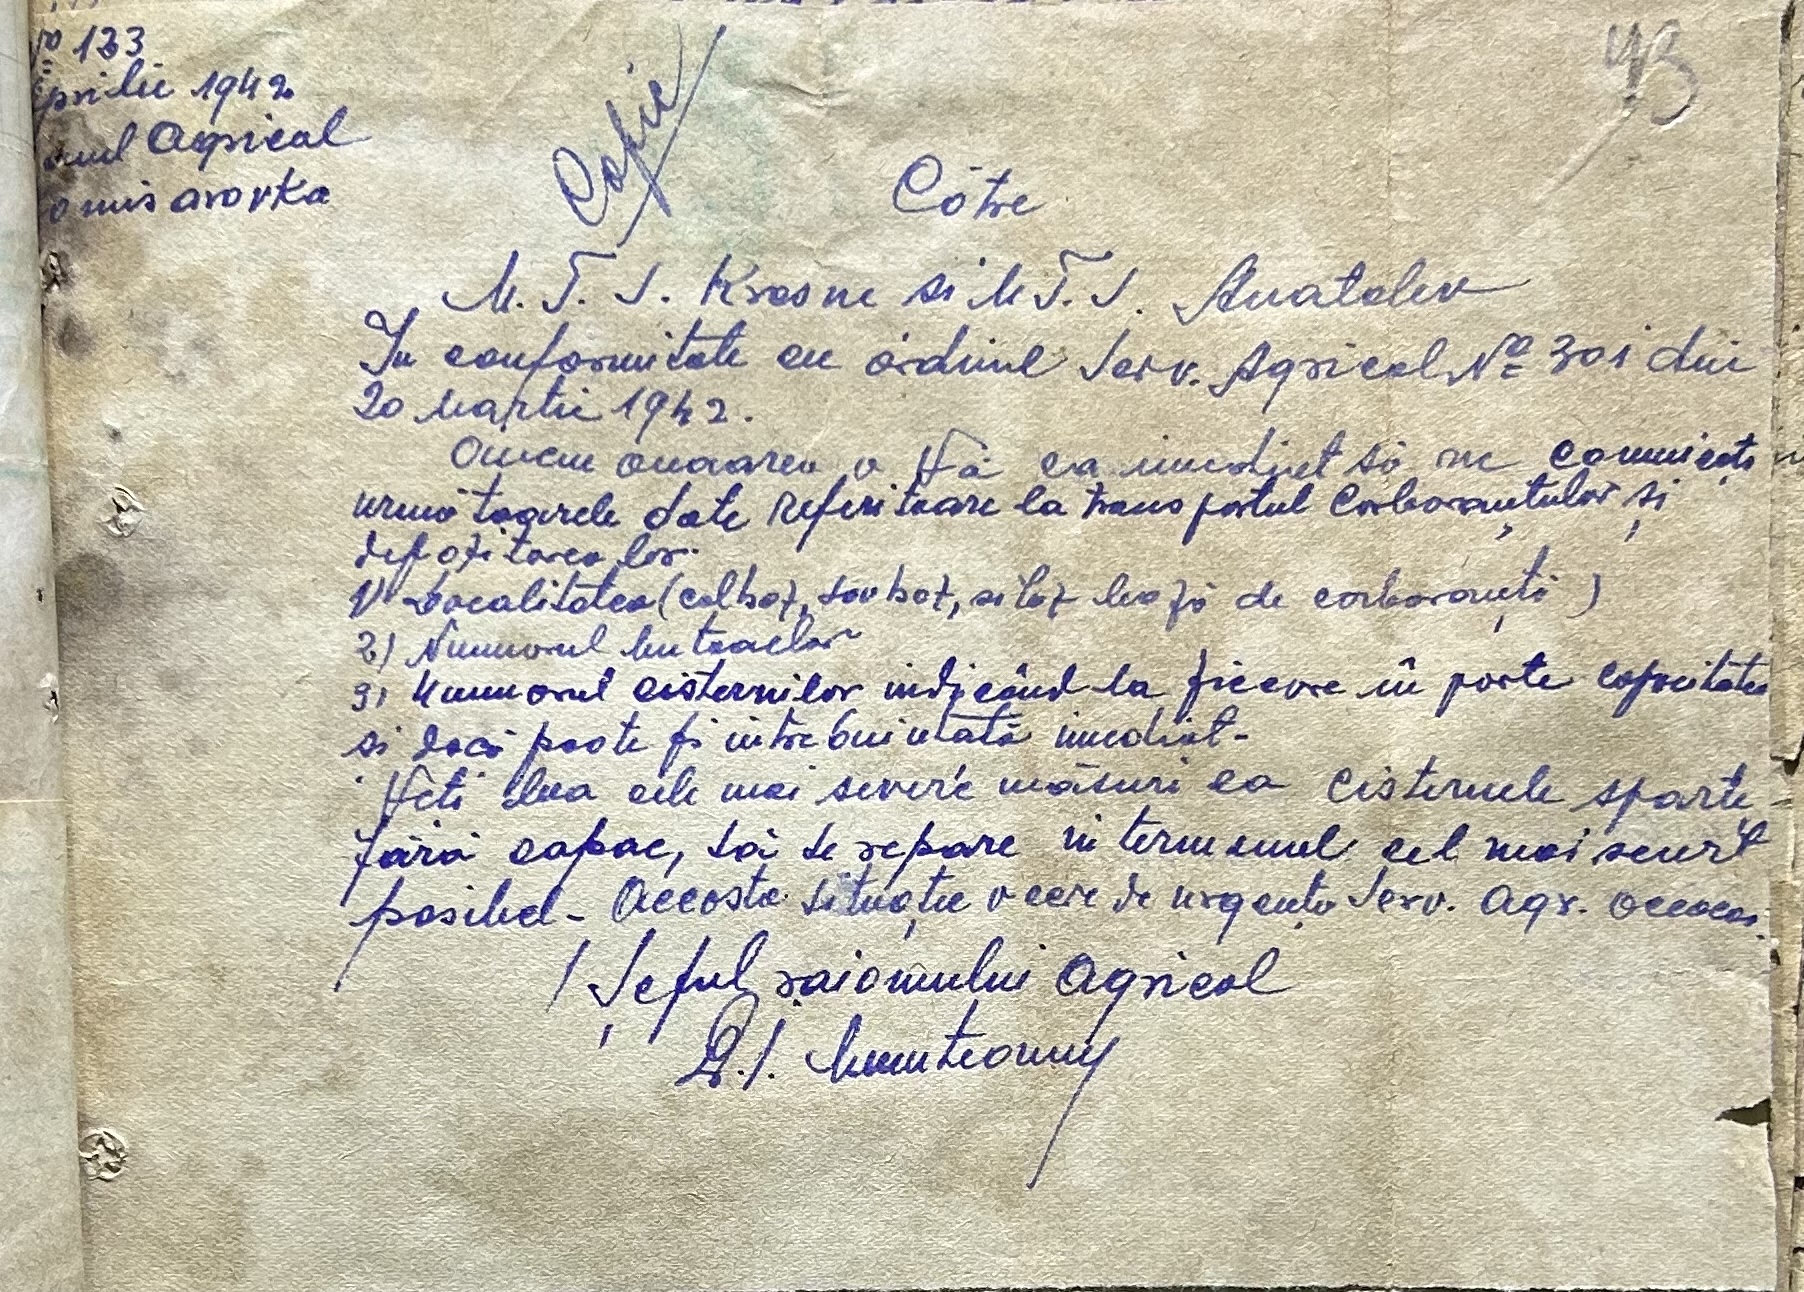 No 133
prilie 1942
onul Agricol
omisarovka
Copie
43
Cótre
M.T.S. Krasne si M.T.S. Anatolev
In conformitate cu ordinul Serv. Agricol No 301 din
20 Martie 1942.
Avem onoarea a Vă ca imediat să ne comunicați
urmòtoarele date referitoare la transportul carboranților și
depozitarea lor.
1) Localitatea (colhoz, sovhoz, siloz bază de carboranți)
2) Numarul butoaelor
3) Numarul cisternilor indicând la fiecare în parte capacitatea
si dacă poate fi intrebuintată imediat-
Veti lua cele mai severe măsuri ca cisternele sparte
fără capac, să se repare in termenul cel mai scurt
posibil - Aceasta situație o cere de urgență Serv. Agr. Oceacov.
Șeful raionului Agricol
Munteanu